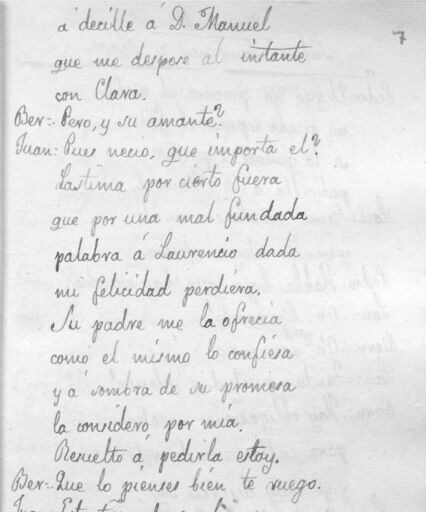 á decille á D. Manuel
7
que me despose al instante
con Clara.
Ber:. Pero, y su amante?
Juan: Pues necio, que importa el?
Lastima por cierto fuera
que por una mal fundada
palabra á Laurencio dada
mi felicidad perdiera.
Su padre me la ofrecia
como el mismo lo confiesa
y á sombra de su promesa
la considero por mia.
Resuelto á pedirla estoy.
Ber:. Que lo pienses bien te ruego.